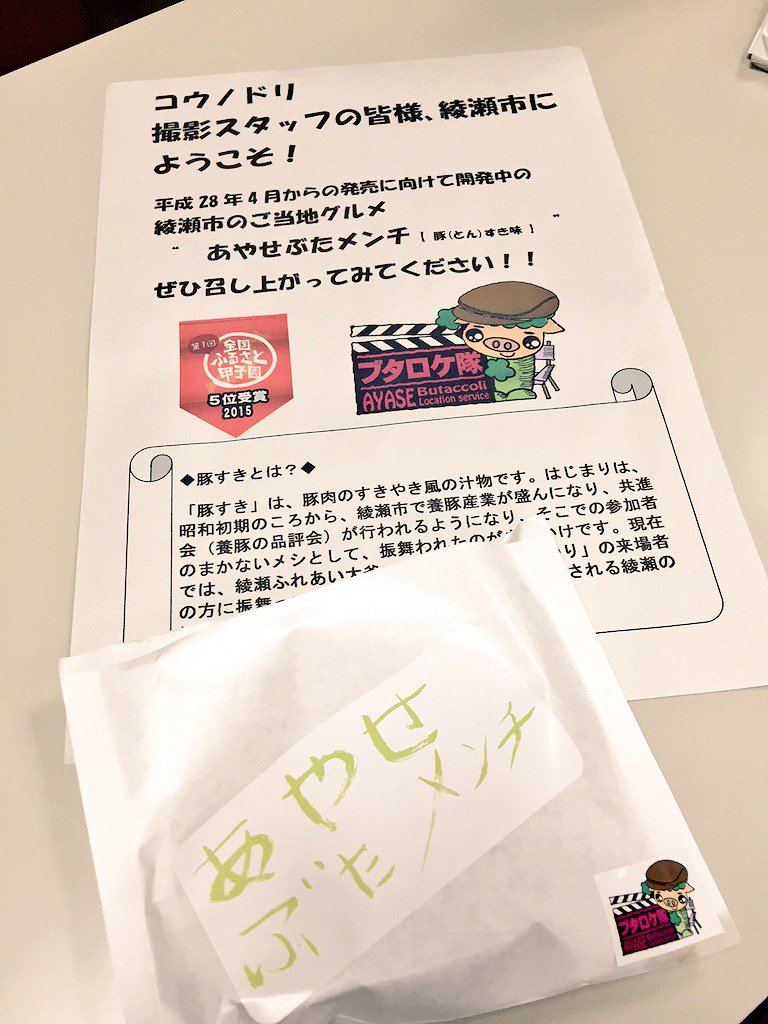 コウノドリ
撮影スタッフの皆様、綾瀬市に
ようこそ！
平成28年4月からの発売に向けて開発中の
綾瀬市のご当地グルメ
“ あやせぶたメンチ［ 豚(とん)すき味 ］ ”
ぜひ召し上がってみてください！！
第1回
全国
ふるさと
甲子園
5位受賞
2015
ブタロケ隊
AYASE Butaccoli
Location service
◆豚すきとは？◆
「豚すき」は、豚肉のすきやき風の汁物です。はじまりは、
昭和初期のころから、綾瀬市で養豚産業が盛んになり、共進
会（養豚の品評会）が行われるようになり、そこでの参加者
のまかないメシとして、振舞われたのが かけです。現在
では、綾瀬ふれあい大 り」の来場者
の方に振舞 される綾瀬の
あやせ
ぶたメンチ
ブタロケ隊
AYASE Butaccoli
Location service